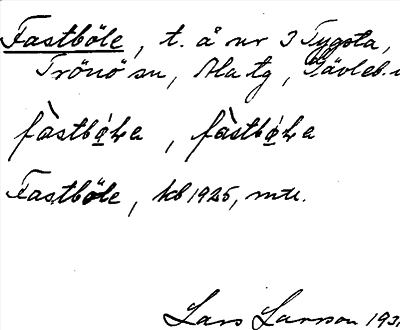 Fastböle, t. å nr 3 Tygsta,
Trönö sn, Ala tg, Gävleb. l
fàstbǫ́Le, fàstbǫ̀La
Fastböle, kb 1925, mtl.
Lars Larsson 193